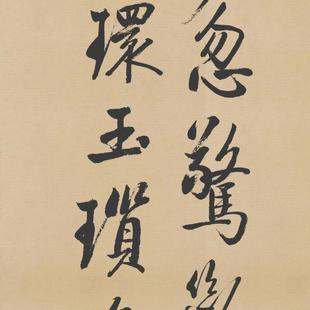 忽驚
環玉瑣